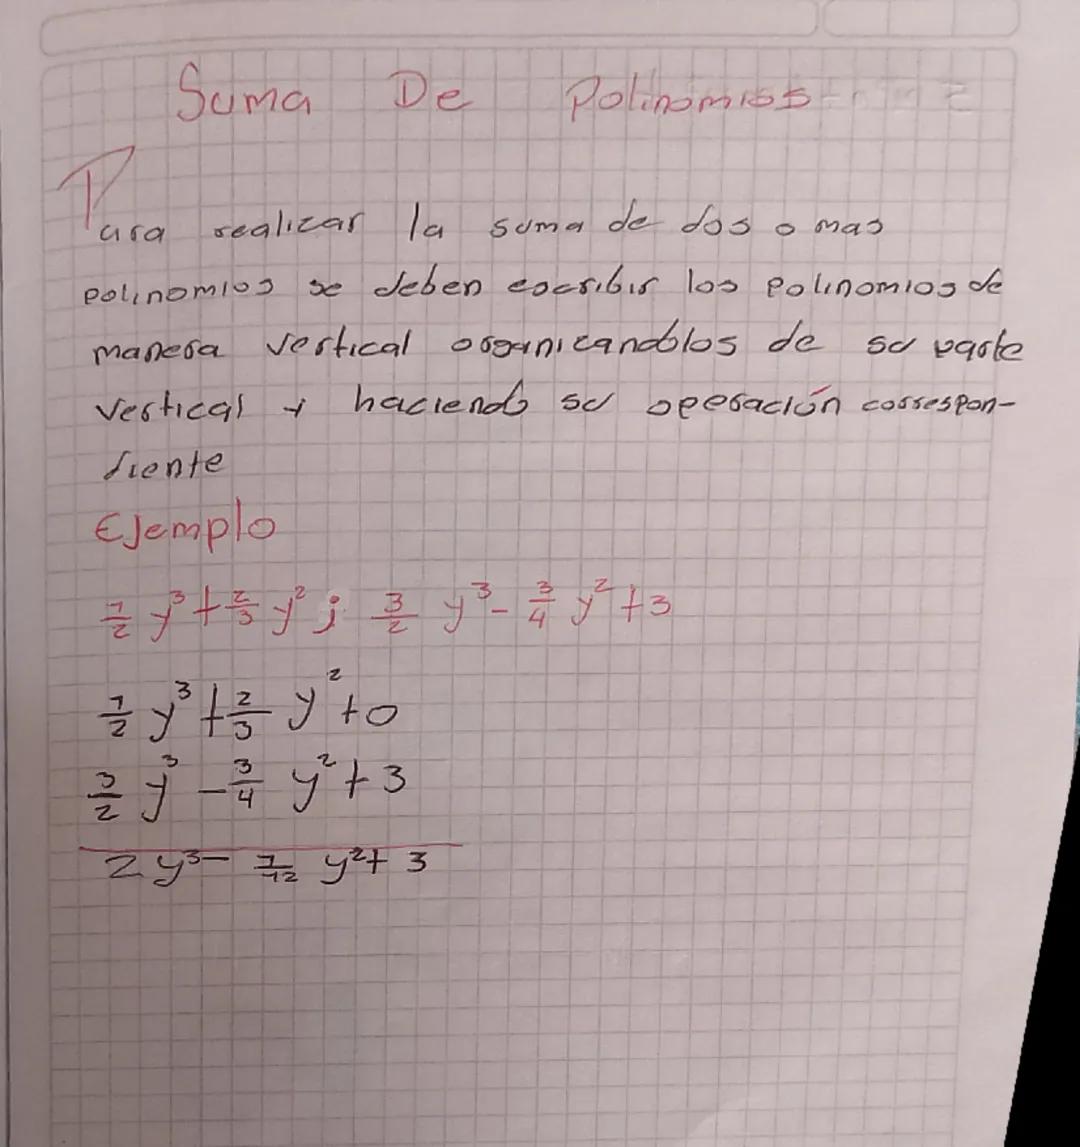 Suma De Polinomios
Para realizar la suma de dos o mas
polinomios se deben escribir los polinomios de
manera vertical organizandolos de su parte
vertical y haciendo su operación correspon-
diente
Ejemplo
1/2 y³ + 2/3 y² ; 3/2 y³ - 3/4 y² + 3
1/2 y³ + 2/3 y² + 0
3/2 y³ - 3/4 y² + 3
2y³ - 1/12 y² + 3